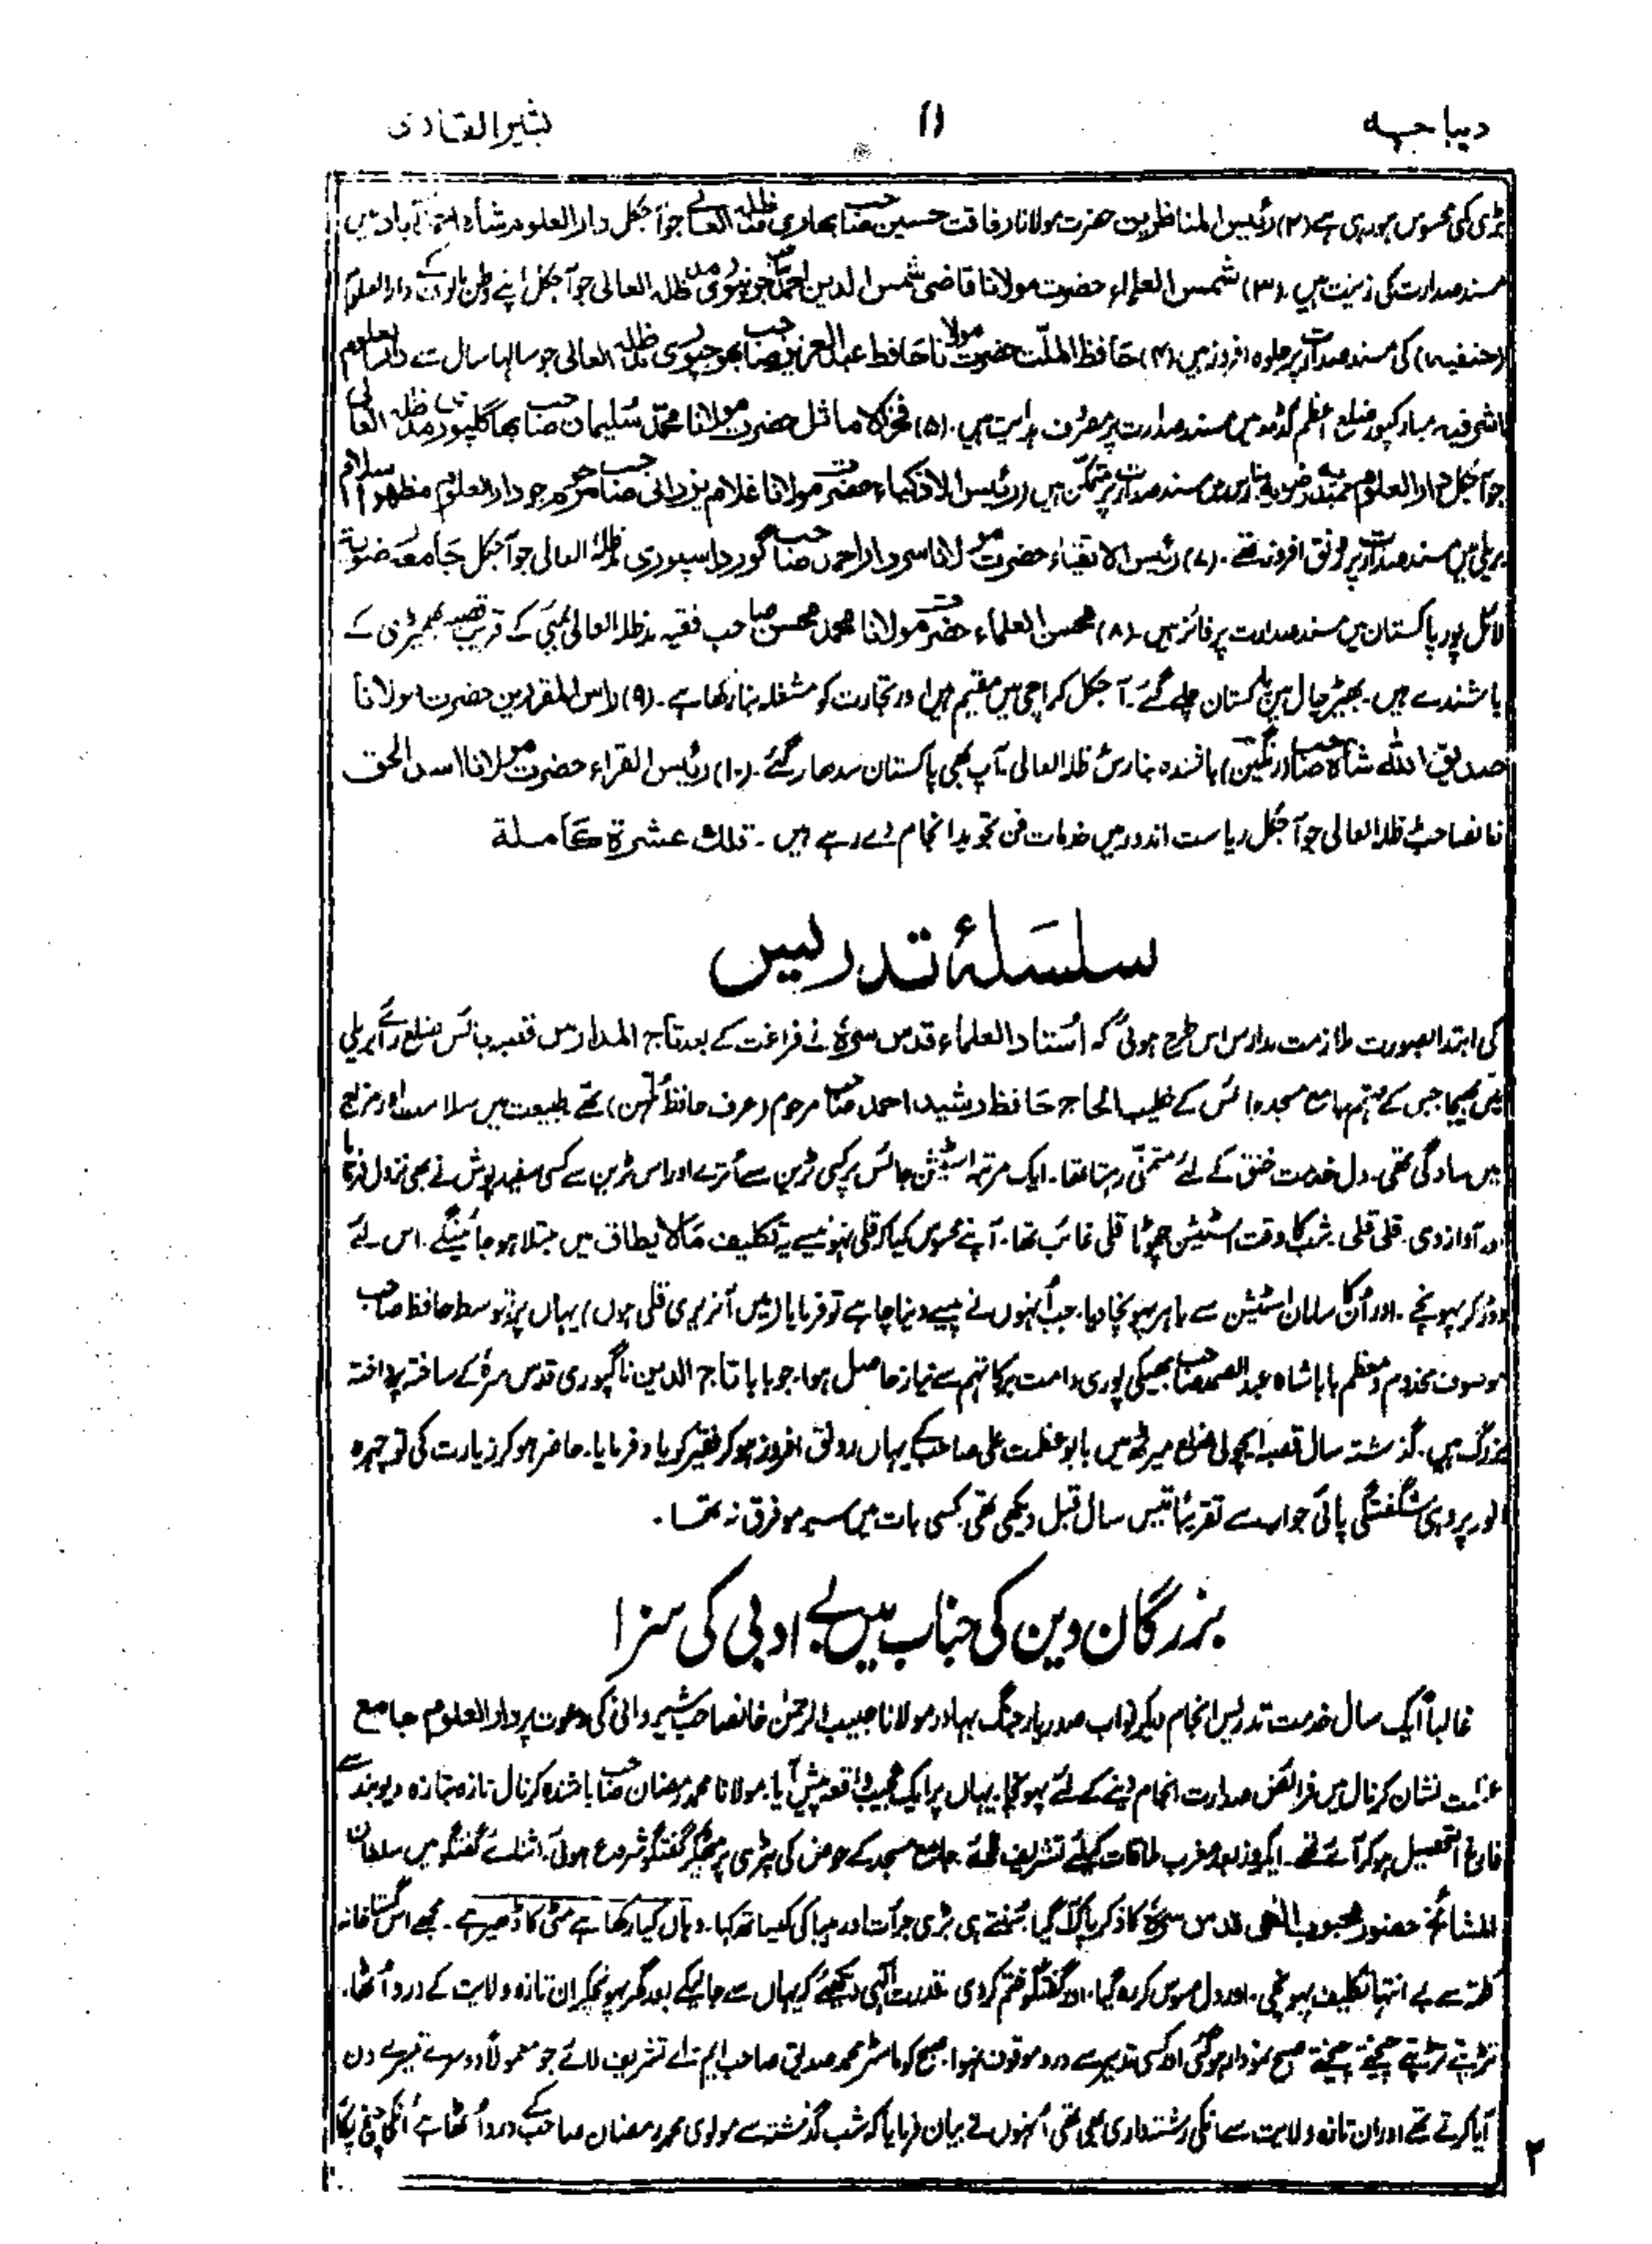 دیباچہ
۱۱
بشیر القاری
بڑی کمی محسوس ہو رہی ہے (۲) رئیس المناظرین حضرت مولانا رفاقت حسین صاحب بھاری مدظلہ العالی جو آجکل دار العلوم شاہ احمدآباد میں
مسند صدارت کی زینت ہیں۔ (۳) شمس العلماء حضرت مولانا قاضی شمس الدین احمد صاحب جونپوری مدظلہ العالی جو آجکل اپنے وطن مالوف کے دار العلوم
(حنفیہ) کی مسند صدارت پر جلوہ افروز ہیں (۴) حافظ الملّت حضرت مولانا حافظ عبد العزیز صاحب بھوجپوری مدظلہ العالی جو سالہا سال سے دار العلوم
اشرفیہ مبارکپور ضلع اعظم گڈھ میں مسند صدارت پر مصروف ہدایت ہیں۔ (۵) فخر الاماثل حضرت مولانا محمد سلیمان صاحب بھاگلپوری مدظلہ العالی
جو آجکل دار العلوم حمیدیہ رضویہ بنارس میں مسند صدارت پر متمکن ہیں (رئیس الاذکیاء حضرت مولانا غلام یزدانی صاحب مرحوم جو دار العلوم مظہر اسلام
بریلی میں مسند صدارت پر رونق افروز تھے۔ (۷) رئیس الاتقیاء حضرت مولانا سردار احمد صاحب گورداسپوری مدظلہ العالی جو آجکل جامعہ رضویہ
لائل پور پاکستان میں مسند صدارت پر فائز ہیں۔ (۸) محسن العلماء حضرت مولانا محمد محسن صاحب فقیہ مدظلہ العالی بمبئی کے قریب قصبہ بھیمڑی کے
باشندے ہیں۔ بھیڑ چال میں پاکستان چلے گئے۔ آجکل کراچی میں مقیم ہیں اور تجارت کو مشغلہ بنا رکھا ہے۔ (۹) راس المقررین حضرت مولانا
صدیق اللہ شاہ صاحب (رنگین) باشندہ بنارس مدظلہ العالی۔ آپ بھی پاکستان سدھار گئے۔ (۱۰) رئیس القراء حضرت مولانا اسد الحق
خانصاحب مدظلہ العالی جو آجکل ریاست اندور میں خدمات فن تجوید انجام دے رہے ہیں۔ تلك عشرة كاملة
سلسلۂ تدریس
کی ابتدا بصورت ملازمت مدارس اس طرح ہوئی کہ استاد العلماء قدس سرہٗ نے فراغت کے بعد تاج المدارس قصبہ جائس ضلع رائے بریلی
میں بھیجا جس کے مہتمم جامع مسجد جائس کے خطیب الحاج حافظ رشید احمد صاحب مرحوم (عرف حافظ) تھے۔ طبیعت میں سلامت اور مزاج
میں سادگی تھی۔ دل خدمت خلق کے لئے متمنّی رہتا تھا۔ ایک مرتبہ اسٹیشن جائس پر کسی ٹرین سے اترے اور اس ٹرین سے کسی سفید پوش نے بھی نزول فرمایا
اور آواز دی۔ قلی قلی۔ شب کا وقت اسٹیشن چھوٹا قلی غائب تھا۔ آپنے محسوس کیا کہ قلی نہونیسے یہ تکلیف مالا یطاق میں مبتلا ہو جائینگے۔ اس لئے
دوڑ کر پہونچے۔ اور ان کا سامان اسٹیشن سے باہر پہونچا دیا۔ جب انہوں نے پیسے دینا چاہے تو فرمایا (میں آنریری قلی ہوں) یہاں پر بتوسط حافظ صاحب
موصوف مخدوم و معظم بابا شاہ عبد الصمد صاحب بھیکی پوری دامت برکاتہم سے نیاز حاصل ہوا۔ جو بابا تاج الدین ناگپوری قدس سرہٗ کے ساختہ پرداختہ
بزرگ ہیں۔ گذشتہ سال قصبہ انچولی ضلع میرٹھ میں بابو عظمت علی صاحب کے یہاں رونق افروز ہو کر فقیر کو یاد فرمایا۔ حاضر ہو کر زیارت کی تو چہرہ
انور پر وہی شگفتگی پائی جو اب سے تقریباً تیس سال قبل دیکھی تھی کسی بات میں سرمو فرق نہ تھا۔
بزرگان دین کی جناب میں بے ادبی کی سزا
غالباً ایک سال خدمت تدریس انجام دیکر نواب صدر یار جنگ بہادر مولانا حبیب الرحمٰن خانصاحب شیروانی کی دعوت پر دار العلوم جامع
نشان کرنال میں فرائض صدارت انجام دینے کے لئے پہونچا۔ یہاں پر ایک عجیب واقعہ پیش آیا۔ مولانا محمد رمضان صاحب باشندہ کرنال تازہ بتازہ دیوبند سے
فارغ التحصیل ہو کر آئے تھے۔ ایک روز بعد مغرب ملاقات کیلئے تشریف لائے۔ جامع مسجد کے حوض کی پٹری پر بیٹھکر گفتگو شروع ہوئی۔ اثنائے گفتگو میں سلطان
المشائخ حضور محبوب الٰہی قدس سرہٗ کا ذکر پاک آگیا۔ سنتے ہی بڑی جرأت اور بیباکی کیساتھ کہا۔ وہاں کیا رکھا ہے مٹی کا ڈھیر ہے۔ مجھے اس گستاخانہ
کلمہ سے بے انتہا تکلیف پہونچی۔ اور دل مسوس کر رہ گیا۔ اور گفتگو ختم کر دی۔ قدرت الٰہی دیکھئے کہ یہاں سے جانیکے بعد گھر پہونچکر ان تازہ ولایت کے درد اٹھا۔
تڑپتے تڑپتے چیختے چیختے صبح نمودار ہو گئی اور کسی تدبیر سے درد موقوف نہوا۔ صبح کو ماسٹر محمد صدیق صاحب ایم اے تشریف لائے جو معمولاً دوسرے تیسرے دن
آیا کرتے تھے اور ان تازہ ولایت سے انکی رشتہ داری بھی تھی انہوں نے بیان فرمایا کہ شب گذشتہ سے مولوی محمد رمضان صاحب کے درد اٹھا ہے انکی چیخ پکار
۲